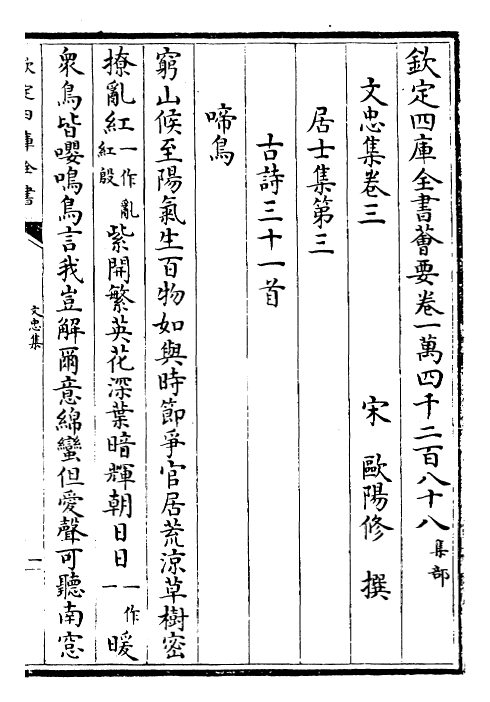 欽定四庫全書薈要卷一萬四千二百八十八 集部
文忠集卷三 宋 歐陽修 撰
居士集第三
古詩三十一首
啼鳥
窮山候至陽氣生百物如與時節爭官居荒涼草樹密
撩亂紅一作亂紅殷紫開繁英花深葉暗輝朝日日一作一暖
衆鳥皆嚶鳴鳥言我豈解爾意綿蠻但愛聲可聽南窓
欽定四庫全書
文忠集
一